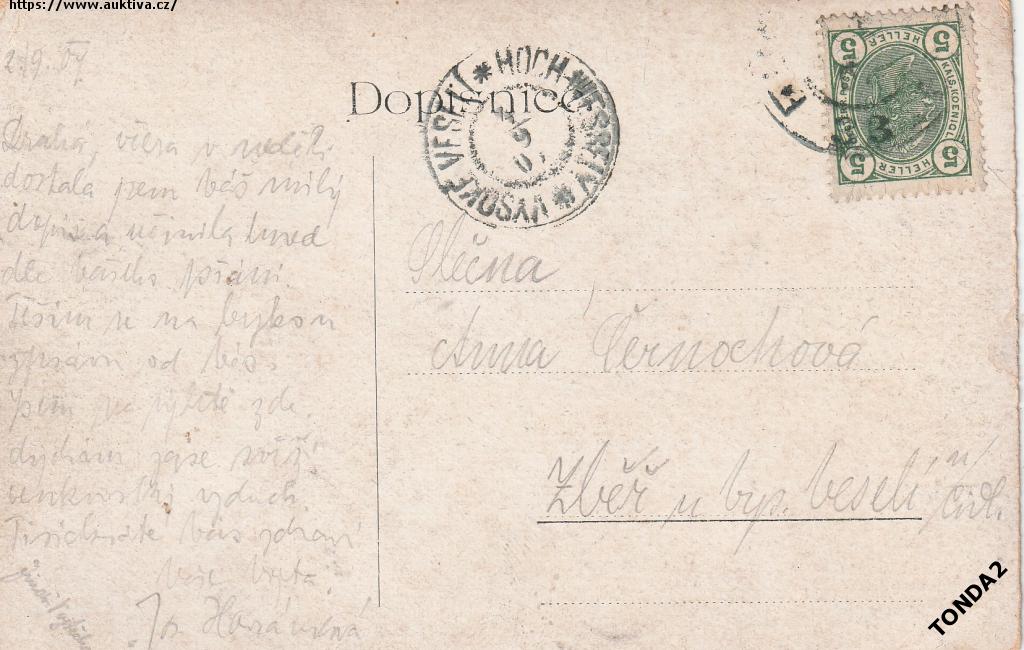 https://www.auktiva.cz/
2/9 07
Dopisnice
HOCH-WESSELY * VYSOKÉ VESELÍ *
5 HELLER 5
KAIS. KOENIGL.
5 HELLER 5
Drahá, včera v neděli
dostala jsem Váš milý
dopis a učinila hned
dle Vašeho přání.
Těším se na
od Vás.
Jsem
dýchám zase svěží
venkovský vzduch
Vás zdraví
Vaše
Slečna
Anna Černochová
Zběř u Vys. Veselí
TONDA2